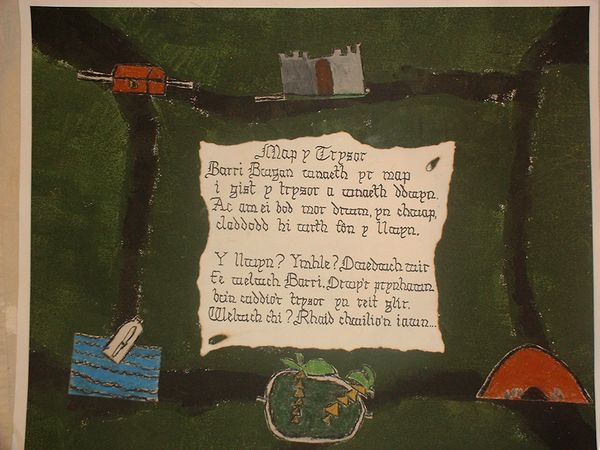 Map y Trysor
Barri Bwgan wnaeth yr map
i gist y trysor a wnaeth ddwyn.
Ac am ei bod mor drwm, yn chwap,
claddodd hi wrth fôn y llwyn.
Y llwyn? Ymhle? Dwedwch wir
Fe welwch Barri, Drwy'r prynhawn
bu'n cuddio'r trysor yn reit glir.
Welwch chi? Rhaid chwilio'n iawn...